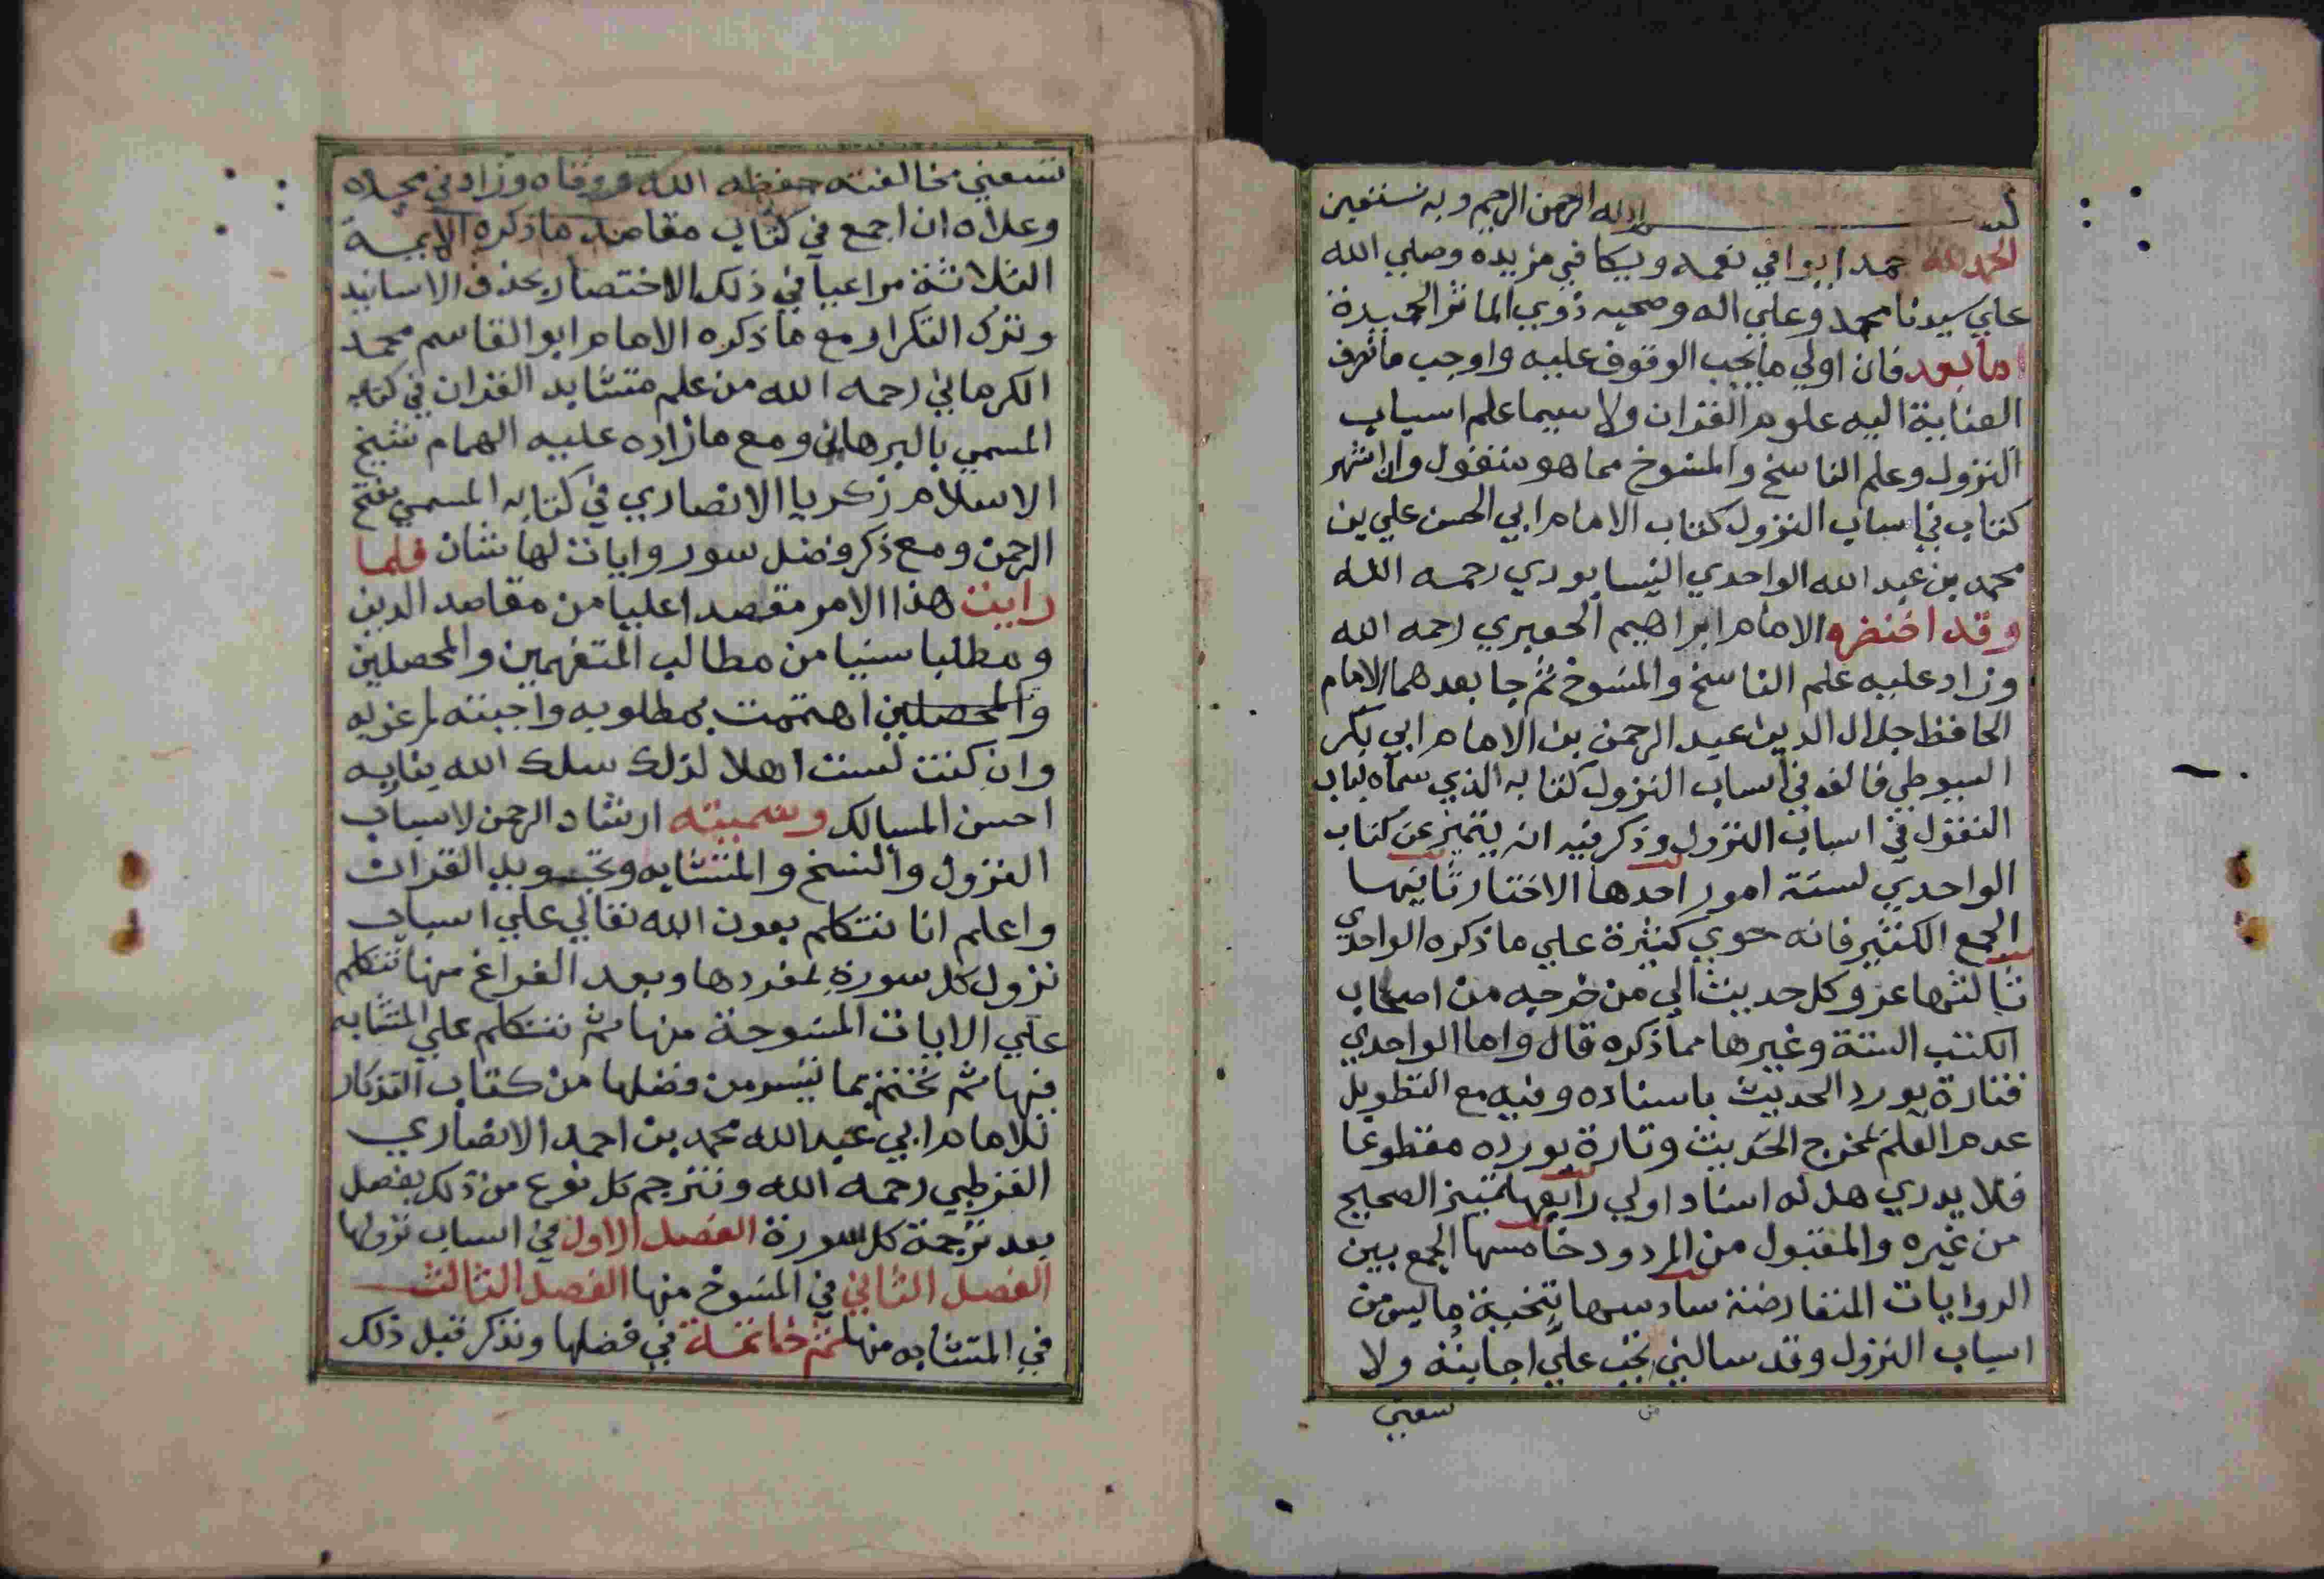 بسم الله الرحمن الرحيم وبه نستعين
الحمد لله حمدا يوافي نعمه ويكافي مزيده وصلي الله
علي سيدنا محمد وعلي اله وصحبه ذوي الماثر الحميدة
اما بعد فان اولي ما يجب الوقوف عليه واوجب ما تصرف
العناية اليه علوم القران ولا سيما علم اسباب
النزول وعلم الناسخ والمنسوخ مما هو منقول وان اشهر
كتاب في اسباب النزول كتاب الامام ابي الحسن علي بن
محمد بن عبد الله الواحدي النيسابوري رحمه الله
وقد اختصره الامام ابراهيم الجعبري رحمه الله
وزاد عليه علم الناسخ والمنسوخ ثم جا بعدهما الامام
الحافظ جلال الدين عبد الرحمن بن الامام ابي بكر
السيوطي فالف في اسباب النزول كتابه الذي سماه لباب
النقول في اسباب النزول وذكر فيه انه يتميز عن كتاب
الواحدي لستة امور احدها الاختار ثانيها
الجمع الكثير فانه حوي كثيرة علي ما ذكره الواحدي
ثالثها عزو كل حديث الي من خرجه من اصحاب
الكتب الستة وغيرها مما ذكره قال واما الواحدي
فتارة يورد الحديث باسناده وفيه مع التطويل
عدم العلم لمخرج الحديث وتارة يورده مقطوعا
فلا يدري هل له اسناد اولي رابعها تمييز الصحيح
من غيره والمقبول من المردود خامسها الجمع بين
الروايات المتعارضة سادسها تنحية ما ليس من
اسباب النزول وقد سالني من تجب علي اجابته ولا
تسعني
تسعني مخالفته حفظه الله ووقاه وزاد في مجده
وعلاه ان اجمع في كتاب مقاصد ما ذكره الايمة
الثلاثة مراعيا في ذلك الاختصار بحذف الاسانيد
وترك التكرار ومع ما ذكره الامام ابو القاسم محمد
الكرماني رحمه الله من علم متشابه القران في كتابه
المسمي بالبرهان ومع ما زاده عليه الهمام شيخ
الاسلام زكريا الانصاري في كتابه المسمي بفتح
الرحمن ومع ذكر وفضل سور وايات لها شان فلما
رايت هذا الامر مقصدا عليا من مقاصد الدين
ومطلبا سنيا من مطالب المتفهمين والمحصلين
والمحصلين اهتممت بمطلوبه واجبته لمرغوبه
وان كنت لست اهلا لذلك سلك الله بنا به
احسن المسالك وسميته ارشاد الرحمن لاسباب
النزول والنسخ والمتشابه وتجويد القران
واعلم انا نتكلم بعون الله تعالي علي اسباب
نزول كل سورة بمفردها وبعد الفراغ منها نتكلم
علي الايات المنسوخة منها ثم نتكلم علي المتشابه
فيها ثم نختم بما تيسر من فضلها من كتاب التذكار
للامام ابي عبد الله محمد بن احمد الانصاري
القرطبي رحمه الله ونترجم كل نوع من ذلك بفصل
بعد ترجمة كل سورة الفصل الاول في اسباب نزولها
الفصل الثاني في المنسوخ منها الفصل الثالث
في المتشابه منها ثم خاتمة في فضلها ونذكر قبل ذلك